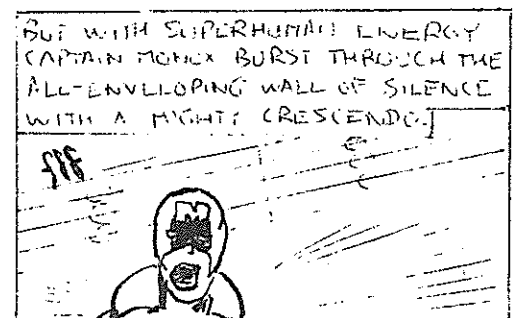 BUT WITH SUPERHUMAN ENERGY
CAPTAIN MONOX BURST THROUGH THE
ALL-ENVELOPING WALL OF SILENCE
WITH A MIGHTY CRESCENDO.
fff
M